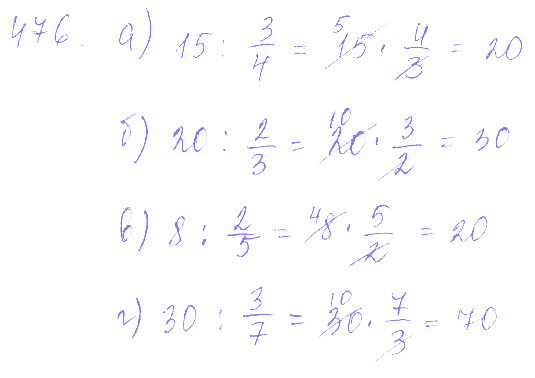 476. а) 15 : 3/4 = 15 5 · 4/3 = 20
б) 20 : 2/3 = 20 10 · 3/2 = 30
в) 8 : 2/5 = 8 4 · 5/2 = 20
г) 30 : 3/7 = 30 10 · 7/3 = 70